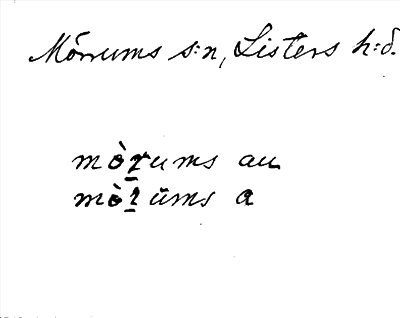 Mörrums s:n, Listers h:d.
mòr̲ums au
mòr̲ūms a